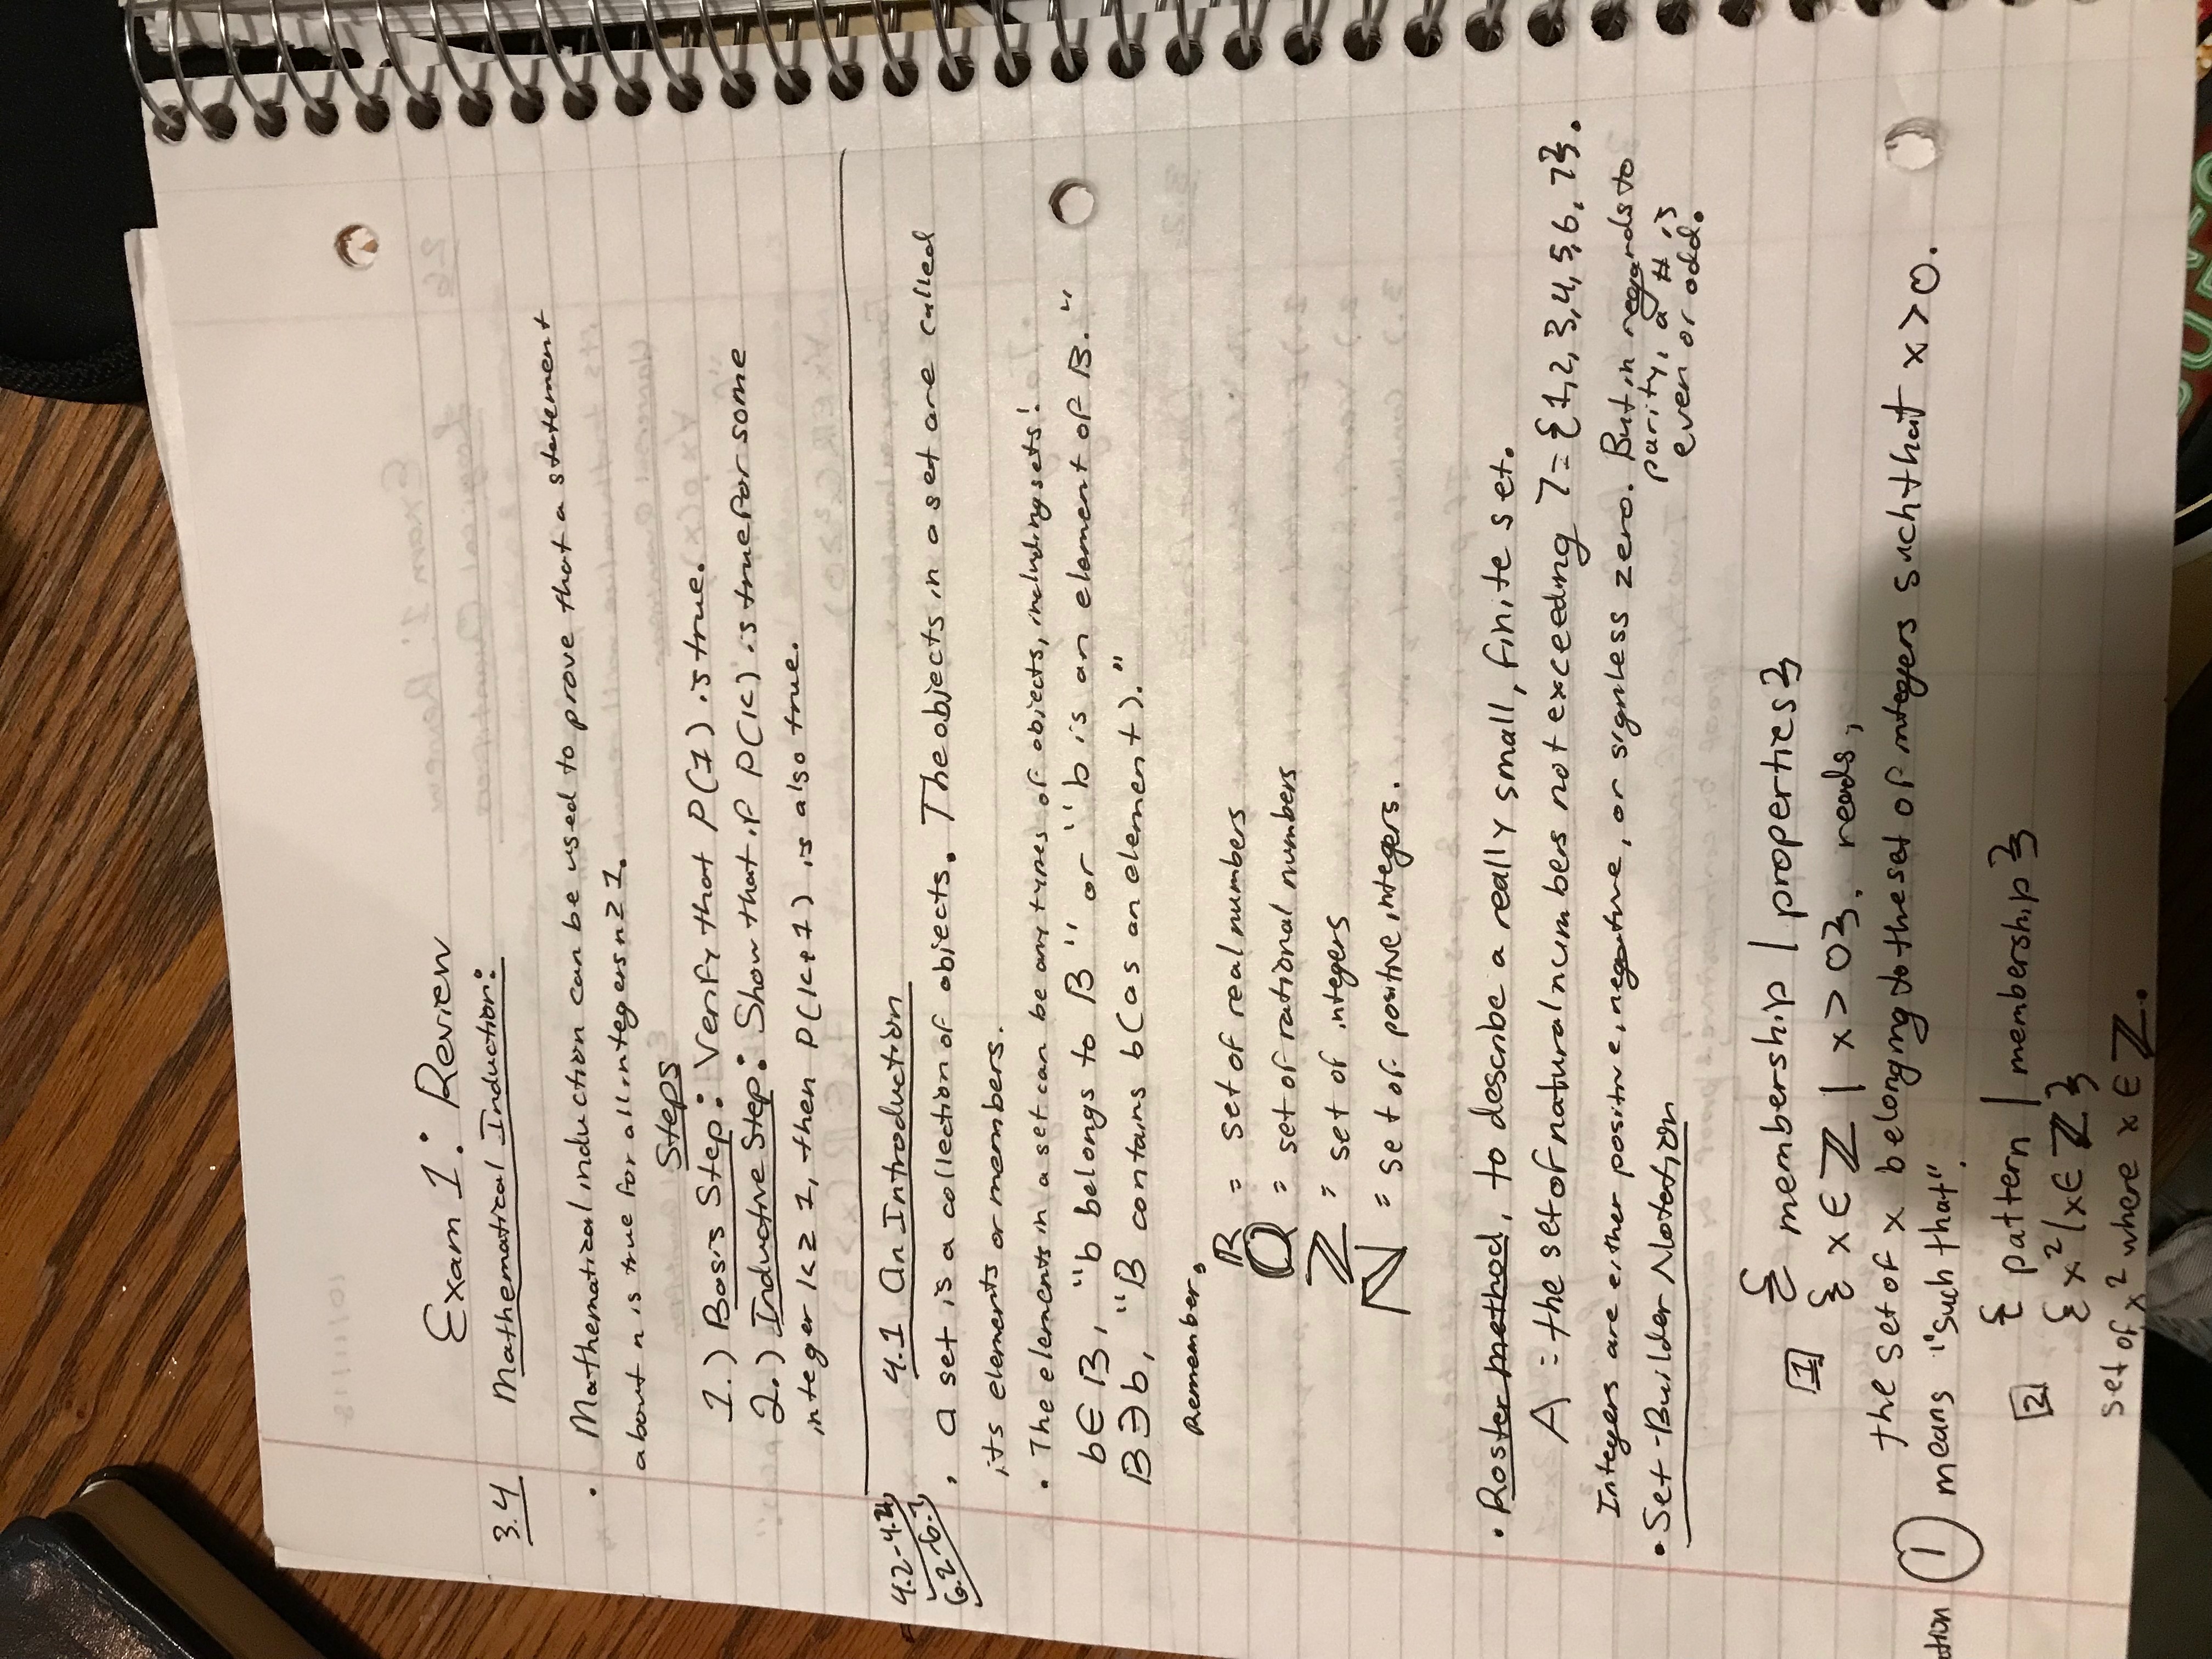 Exam 1: Review
3.4 Mathematical Induction:
• Mathematical induction can be used to prove that a statement
about n is true for all integers n ≥ 1.
Steps
1.) Basis Step: Verify that P(1) is true.
2.) Inductive Step: Show that if P(k) is true for some
integer k ≥ 1, then P(k+1) is also true.
4.2-4.4
6.2-6.7
4.1 An Introduction
• A set is a collection of objects. The objects in a set are called
its elements or members.
• The elements in a set can be any types of objects, including sets!
b ∈ B, "b belongs to B" or "b is an element of B."
B ∋ b, "B contains b (as an element)."
Remember,
ℝ = set of real numbers
ℚ = set of rational numbers
ℤ = set of integers
ℕ = set of positive integers.
• Roster method, to describe a really small, finite set.
A = the set of natural numbers not exceeding 7 = {1, 2, 3, 4, 5, 6, 7}.
Integers are either positive, negative, or signless zero. But in regards to
parity, a # is
even or odd.
• Set-Builder Notation
{ membership | properties }
1 { x ∈ ℤ | x > 0 }, reads,
the set of x belonging to the set of integers such that x > 0.
| means "such that".
{ pattern | membership }
2 { x² | x ∈ ℤ }
set of x² where x ∈ ℤ.